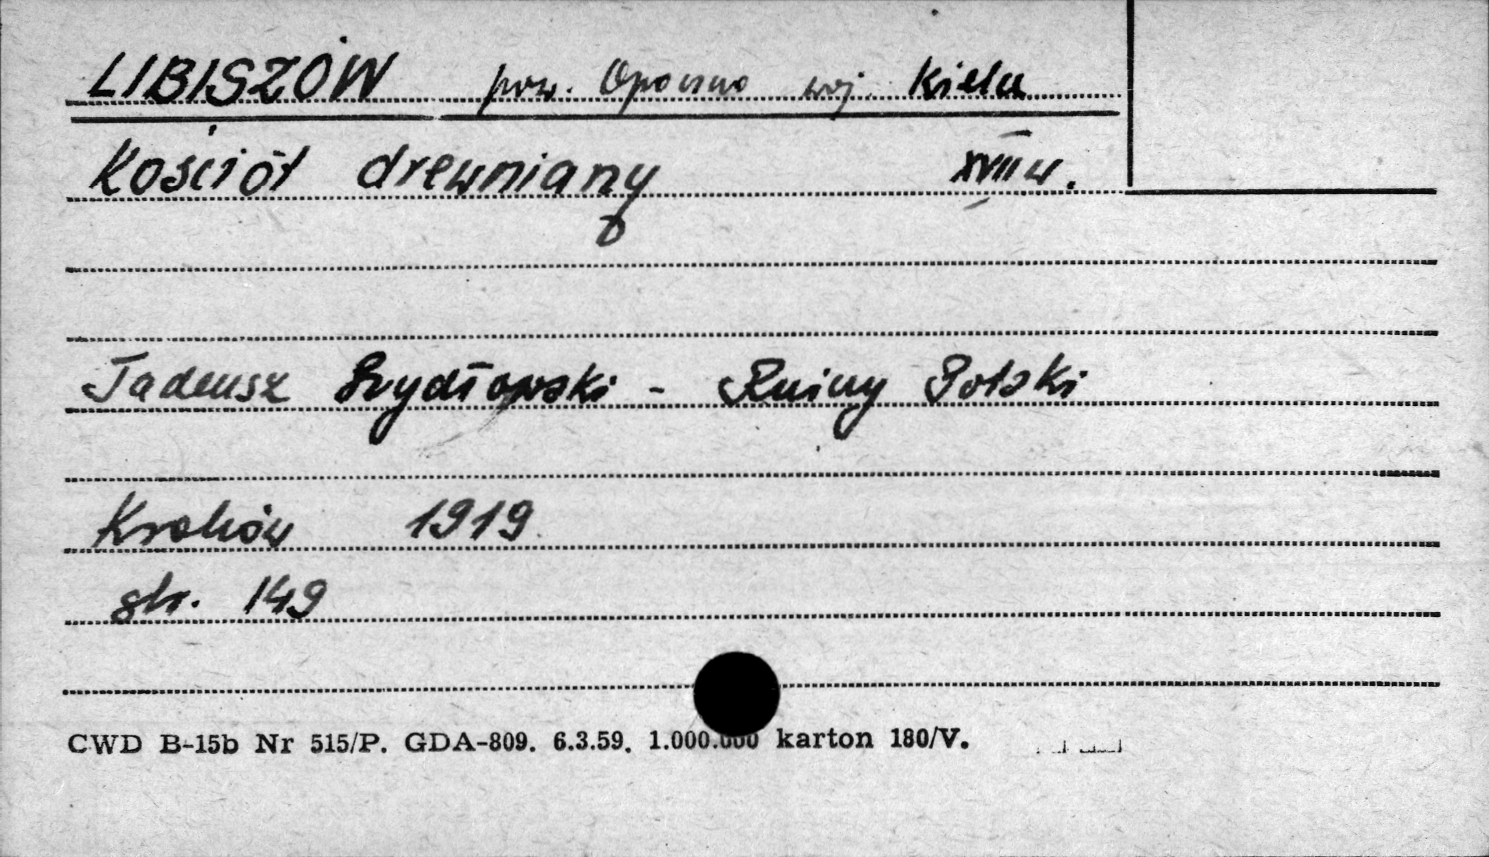 LIBISZÓW pow. Opoczno woj. Kielce
Kościół drewniany XVIII w.
Tadeusz Szydłowski - Ruiny Polski
Kraków 1919
str. 149
CWD B-15b Nr 515/P. GDA-809. 6.3.59. 1.000.000 karton 180/V.